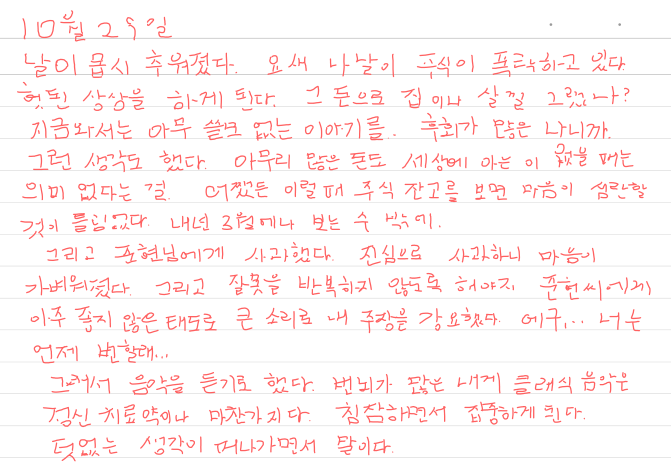 10월 29일
날이 몹시 추워졌다. 요새 나날이 주식이 폭락하고 있다
헛된 상상을 하게 된다. 그 돈으로 집이나 살껄 그랬나?
지금와서는 아무 쓸모 없는 이야기를. 후회가 많은 나니까.
그런 생각도 했다. 아무리 많은 돈도 세상에 아는 이 없을 때는
의미 없다는 걸. 어쨌든 이럴 때 주식 잔고를 보면 마음이 심란할
것이 틀림없다. 내년 3월에나 보는 수 밖에.
그리고 준현님에게 사과했다. 진심으로 사과하니 마음이
가벼워졌다. 그리고 잘못을 반복하지 않도록 해야지 준헌씨에게
아주 좋지 않은 태도로 큰 소리로 내 주장을 강요했다. 에구... 너는
언제 변할래...
그래서 음악을 듣기로 했다. 번뇌가 많은 내게 클래식 음악은
정신 치료약이나 마찬가지다. 침잠하면서 집중하게 된다.
덧없는 생각이 떠나가면서 말이다.